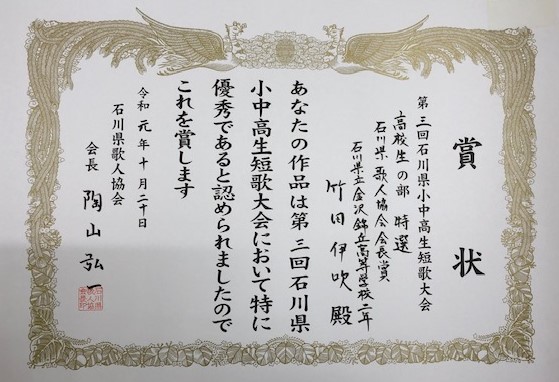 賞状
第三回石川県小中高生短歌大会
高校生の部 特選
石川県歌人協会会長賞
石川県立金沢錦丘高等学校二年
竹田伊吹殿
あなたの作品は第三回石川県
小中高生短歌大会において特に
優秀であると認められましたので
これを賞します
令和元年十月二十日
石川県歌人協会
会長 陶山弘一